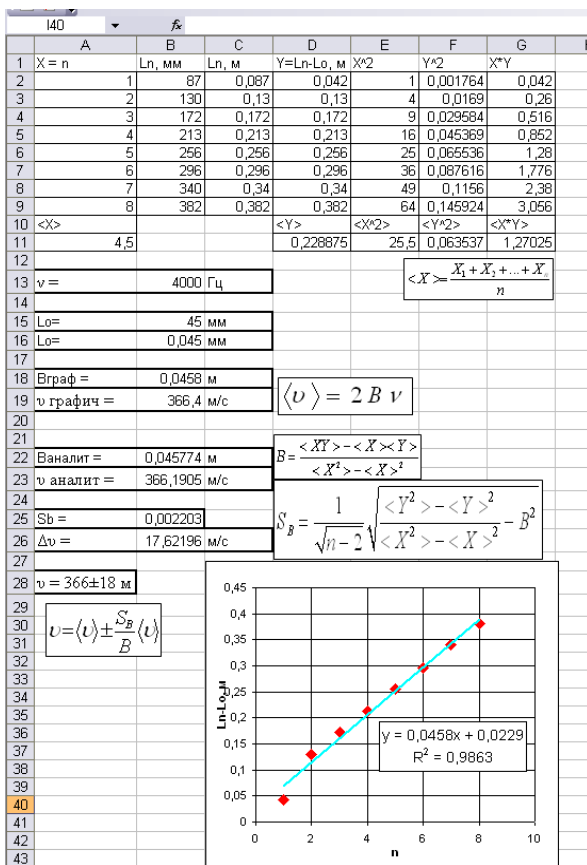 I40 fx
A B C D E F G
1 X = n Ln, мм Ln, м Y=Ln-Lo, м X^2 Y^2 X*Y
2 1 87 0,087 0,042 1 0,001764 0,042
3 2 130 0,13 0,13 4 0,0169 0,26
4 3 172 0,172 0,172 9 0,029584 0,516
5 4 213 0,213 0,213 16 0,045369 0,852
6 5 256 0,256 0,256 25 0,065536 1,28
7 6 296 0,296 0,296 36 0,087616 1,776
8 7 340 0,34 0,34 49 0,1156 2,38
9 8 382 0,382 0,382 64 0,145924 3,056
10 <X> <Y> <X^2> <Y^2> <X*Y>
11 4,5 0,228875 25,5 0,063537 1,27025
12
13 ν = 4000 Гц <X>=(X₁+X₂+...+Xₙ)/n
14
15 Lo= 45 мм
16 Lo= 0,045 мм
17
18 Bграф = 0,0458 м
19 υ графич = 366,4 м/с ⟨υ⟩ = 2 B ν
20
21
22 Bаналит = 0,045774 м B=(<XY>-<X><Y>)/(<X²>-<X>²)
23 υ аналит = 366,1905 м/с
24
25 Sb = 0,002203 S_B = 1/√(n-2) √((<Y²>-<Y>²)/(<X²>-<X>²) - B²)
26 Δυ = 17,62196 м/с
27
28 υ = 366±18 м
29
30 υ=⟨υ⟩±(S_B/B)⟨υ⟩
31
32
33
34
35
36
37
38
39
40
41
42
43
0,45
0,4
0,35
0,3
0,25
0,2
0,15
0,1
0,05
0
Ln-Lo, м
y = 0,0458x + 0,0229
R² = 0,9863
0 2 4 6 8 10
n